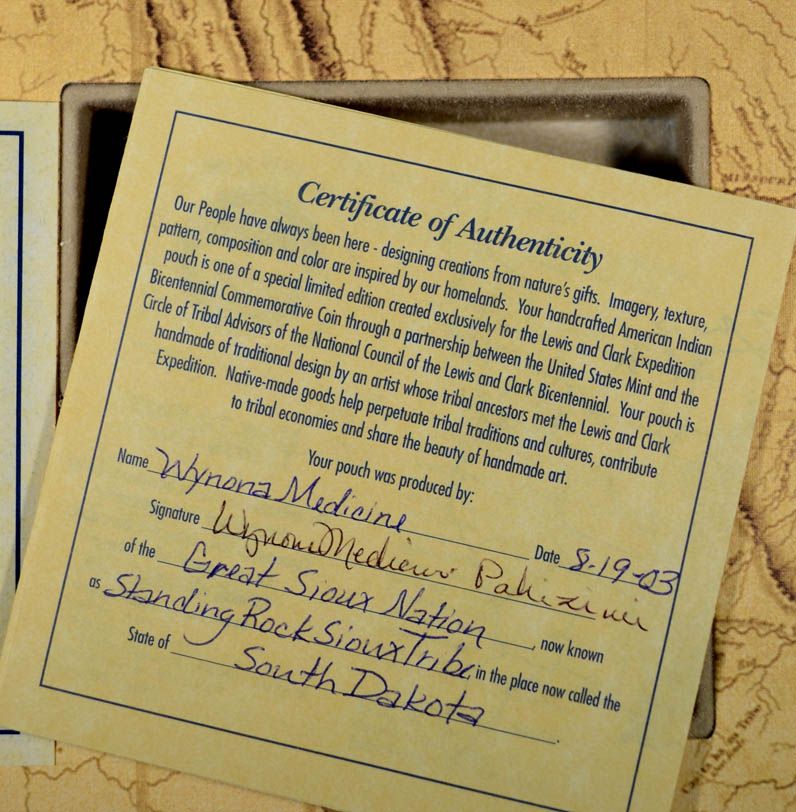 Certificate of Authenticity
Our People have always been here - designing creations from nature's gifts. Imagery, texture,
pattern, composition and color are inspired by our homelands. Your handcrafted American Indian
pouch is one of a special limited edition created exclusively for the Lewis and Clark Expedition
Bicentennial Commemorative Coin through a partnership between the United States Mint and the
Circle of Tribal Advisors of the National Council of the Lewis and Clark Bicentennial. Your pouch is
handmade of traditional design by an artist whose tribal ancestors met the Lewis and Clark
Expedition. Native-made goods help perpetuate tribal traditions and cultures, contribute
to tribal economies and share the beauty of handmade art.
Your pouch was produced by:
Name Wynona Medicine Date 8-19-03
Signature Wynona Medicine
of the Great Sioux Nation, now known
as Standing Rock Sioux Tribe, in the place now called the
State of South Dakota.
MISSOURI